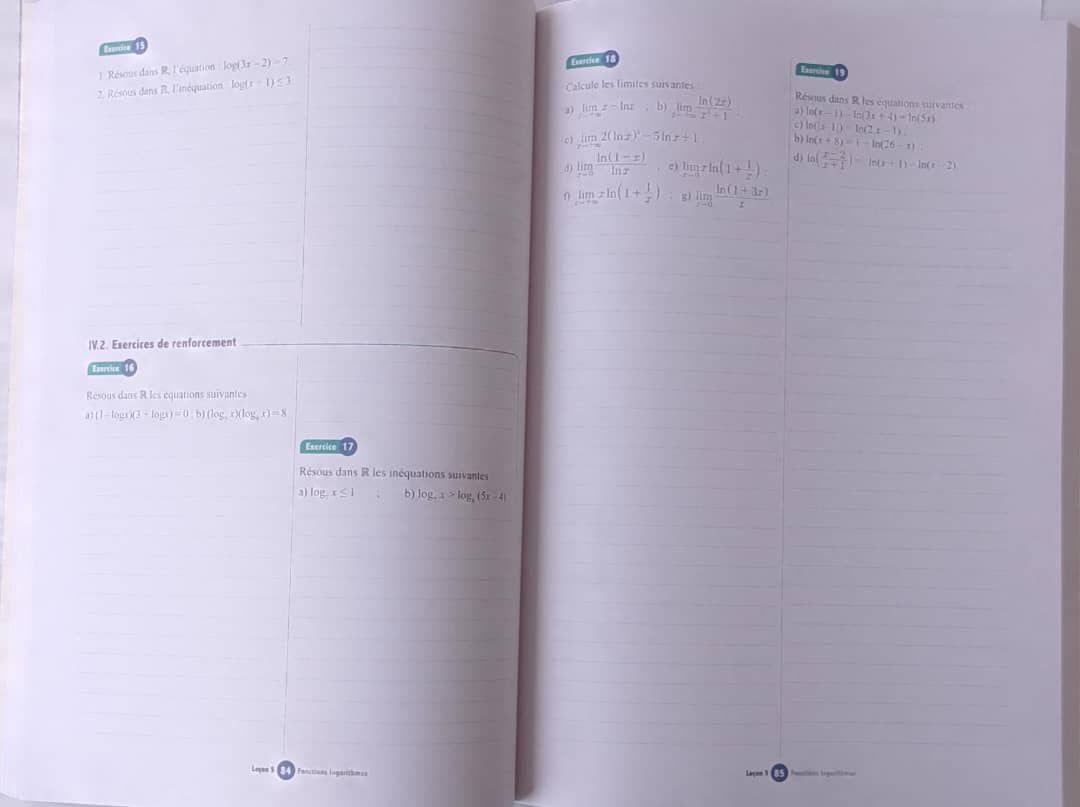 Exercice 15
1. Résous dans ℝ, l'équation : log(3x − 2) = 7.
2. Résous dans ℝ, l'inéquation : log(x − 1) ≤ 3
IV.2. Exercices de renforcement
Exercice 16
Résous dans ℝ les équations suivantes
a) (1 − logx)(3 + logx) = 0 ; b) (log x)(log x) = 8
Exercice 17
Résous dans ℝ les inéquations suivantes
a) log x ≤ 1 ; b) log x > log (5x − 4)
Leçon 5 84 Fonctions logarithmes
Exercice 18
Calcule les limites suivantes :
a) lim x→+∞ x − lnx ; b) lim x→+∞ ln(2x)/(x² + 1) ;
c) lim x→+∞ 2(lnx)² − 5lnx + 1
d) lim x→0 ln(1 − x)/lnx ; e) lim x→0 x ln(1 + 1/x) ;
f) lim x→+∞ x ln(1 + 1/x) ; g) lim x→0 ln(1 + 3x)/x
Exercice 19
Résous dans ℝ les équations suivantes
a) ln(x − 1) − ln(3x + 4) = ln(5x)
c) ln(|x − 1|) = ln(2x − 1) .
b) ln(x + 8) = 1 − ln(26 − x) ;
d) ln((x − 2)/(x + 1)) = ln(x + 1) − ln(x − 2)
Leçon 5 85 Fonctions logarithmes